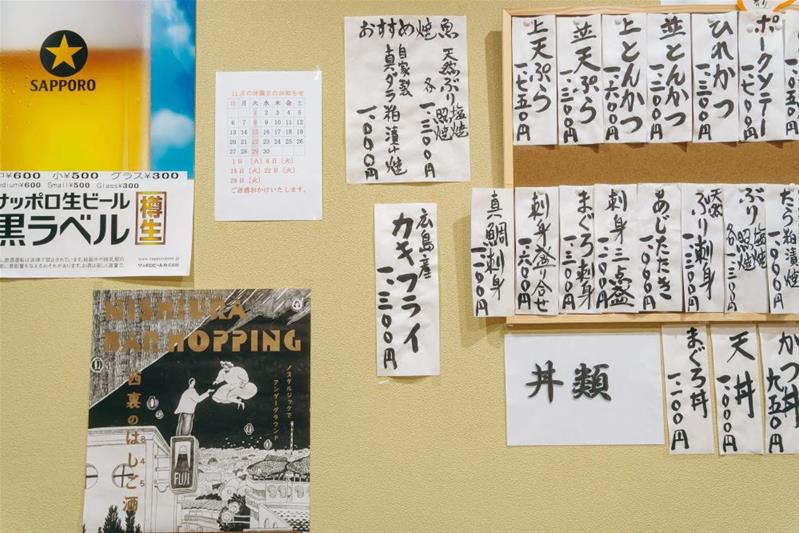 SAPPORO
中¥600 小¥500 グラス¥300
Medium¥600 Small¥500 Glass¥300
サッポロ生ビール
黒ラベル
樽生
サッポロビール株式会社
11月の休業日のお知らせ
日 月 火 水 木 金 土
1 2 3 4 5
6 7 8 9 10 11 12
13 14 15 16 17 18 19
20 21 22 23 24 25 26
27 28 29 30
1日 (火) 8日 (火)
15日 (火) 22日 (火)
29日 (火)
ご迷惑おかけいたします。
おすすめ焼魚
天然ぶり塩焼
照焼
各一、三〇〇円
自家製
真ダラ粕漬け焼
一、〇〇〇円
広島産
カキフライ
一、三〇〇円
ポークソテー
ひれかつ
並とんかつ
上とんかつ
一、六〇〇円
並天ぷら
上天ぷら
一、七五〇円
たら粕漬焼
ぶり塩焼
照焼
各一、三〇〇円
天然
ぶり刺身
あじたたき
刺身三点盛
まぐろ刺身
刺身盛り合せ
一、六〇〇円
真鯛刺身
丼類
かつ丼
九五〇円
天丼
まぐろ丼
一、二〇〇円
NISHIURA
BAR HOPPING
西裏のはしご酒
8 4 5
ノスタルジックで
アンダーグラウンド
FUJI